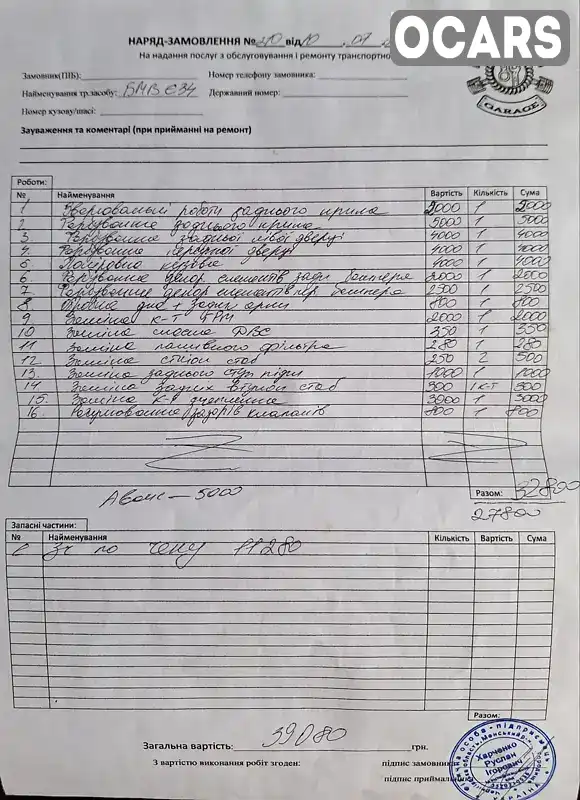 OCARS
НАРЯД-ЗАМОВЛЕННЯ № 210 від 10 . 07
На надання послуг з обслуговування і ремонту транспортно
Замовник(ПІБ):
Номер телефону замовника:
Найменування тр.засобу: БМВ е34
Державний номер:
Номер кузову/шасі:
GARAGE
Зауваження та коментарі (при прийманні на ремонт)
Роботи:
№ Найменування Вартість Кількість Сума
1 роботи заднього крила 2000 1 2000
2 Фарбування заднього крила 5000 1 5000
3. Фарбування задньої лівої двері 4000 1 4000
4. Фарбування двері 4000 1 4000
5. 4000 1 4000
6. Фарбування декор. елементів задн бампера 2000 1 2000
7. Фарбування декор елементів пер. бампера 2500 1 2500
8. дна і задн арки 800 1 800
9 Заміна к-т ГРМ 2000 1 2000
10 Заміна ДВС 350 1 350
11 Заміна паливного фільтра 280 1 280
12. Заміна стаб 250 2 500
13. Заміна заднього 1000 1 1000
14 Заміна задніх втулок стаб 300 1 к-т 300
15. Заміна к-т зчеплення 3000 1 3000
16. Регулювання зазорів клапанів 800 1 800
Разом: 32800
Аванс – 5000
27800
Запасні частини:
№ Найменування Кількість Вартість Сума
зч по чеку 11280
Разом:
Загальна вартість: 39080 грн.
З вартістю виконання робіт згоден:
підпис замовника
підпис приймальника
Фізична особа - підприємець
Харченко
Руслан
Ігорович
УКРАЇНА